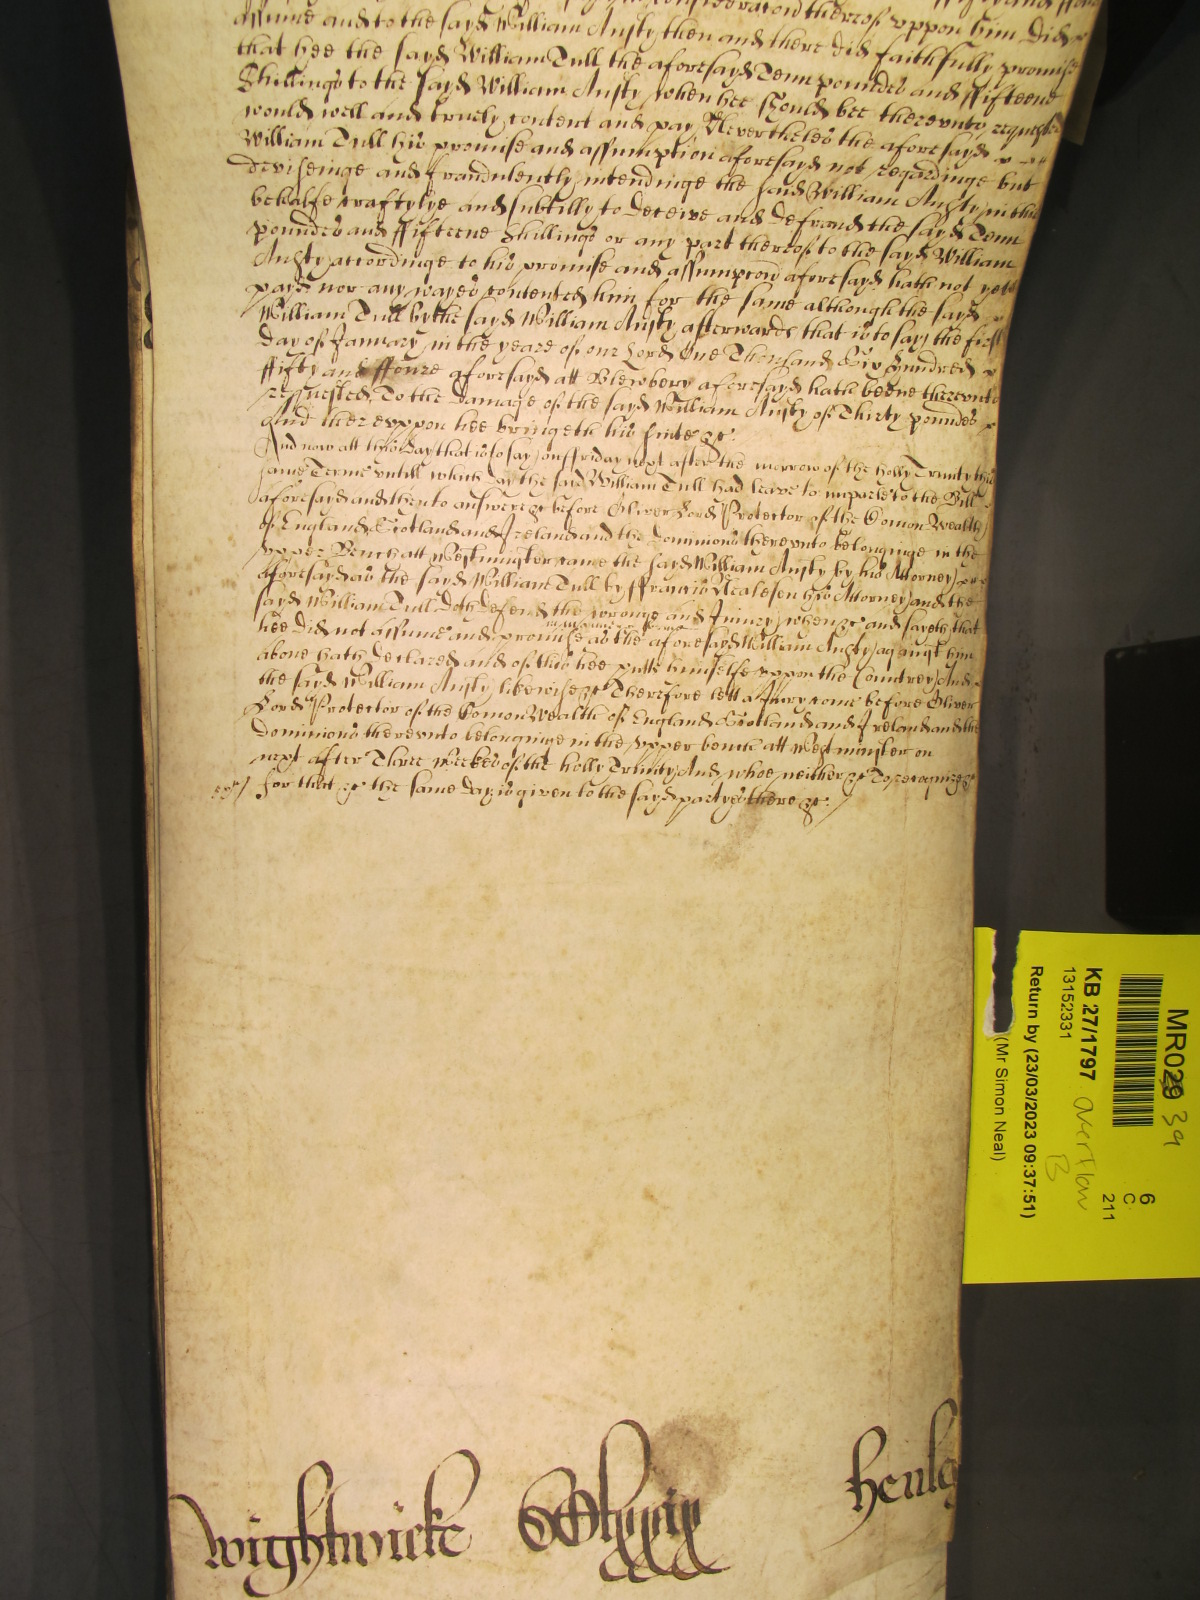 consideracon thereof vppon him did
assume and to the sayd William Ansty then and there did faithfully promise
that hee the sayd William Tull the aforesayd Tenn poundes and ffifteene
Shillings to the sayd William Ansty when hee should bee therevnto requested
would well and truely content and pay Neverthelesse the aforesayd
William Tull his promise and assumption aforesayd not regardinge but
deviseinge and fraudulently intendinge the said William Ansty in this
behalfe craftylye and subtilly to deceive and defraud the sayd Tenn
poundes and ffifteene Shillings or any part thereof to the sayd William
Ansty accordinge to his promise and assumpcon aforesayd hath not yett
payd nor any wayes contented him for the same although the sayd
William Tull by the sayd William Ansty afterwards that is to say the first
day of January in the yeare of our Lord One Thousand Six Hundred
ffifty and ffoure aforesayd att Blewbery aforesayd hath beene therevnto
requested, To the damage of the sayd William Ansty of Thirty poundes
And therevppon hee bringeth his suite &c.
And now att this day that is to say on ffriday next after the morrow of the holly Trinity this
same Terme vntill which day the said William Tull had leave to imparle to the Bill
aforesayd and then to answere &c before Oliver Lord Protector of the Comon Wealth
of England Scotland and Ireland and the dominions therevnto belonginge in the
vpper Bench att Westminster came the sayd William Ansty by his Attorney
aforesayd as the sayd William Tull by ffrancis his Attorney and the
sayd William Tull doth defend the wronge and Iniury when &c and sayeth that
in manner & forme
hee did not assume and promise as the aforesayd William Ansty against him
above hath declared and of this hee putts himselfe vppon the Countrey And
the sayd William Ansty likewise &c Therefore lett a Jury come before Oliver
Lord Protector of the Comon Wealth of England Scotland and Ireland and the
Dominions therevnto belonginge in the vpper bench att Westminster on
next after Three weekes of the holly Trinity And whoe neither &c To recognize &c
for that &c the same day is given to the sayd partyes there &c.
Wightwicke
Henley
MR029 39
KB 27/1797 overflow
B
13152331
Return by (23/03/2023 09:37:51)
(Mr Simon Neal)
6
C
211